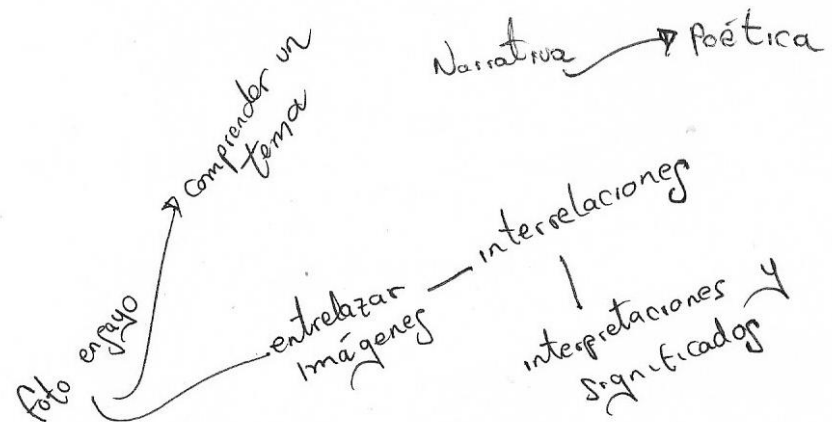 Narrativa
Poética
comprender un
tema
foto ensayo
entrelazar
imágenes
interrelaciones
interpretaciones y
significados